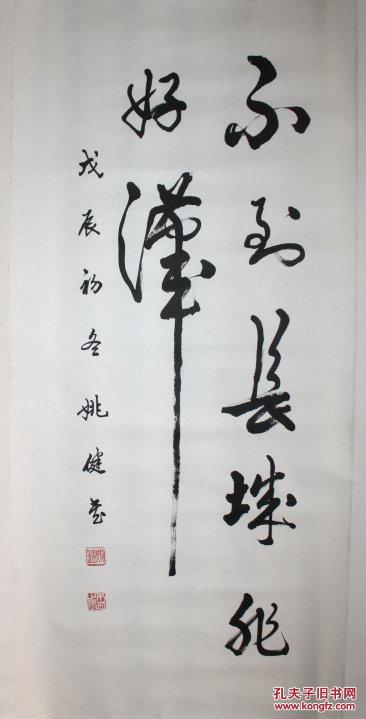 不到長城非
好漢
戊辰初冬姚健
孔夫子旧书网
www.kongfz.com